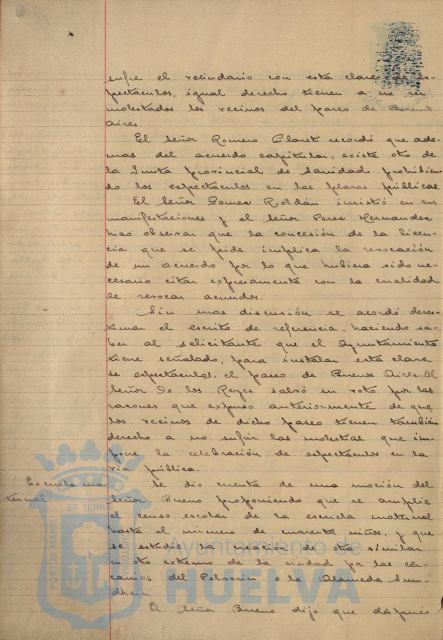 sufre el vecindario con esta clase de es-
pectáculos, igual derecho tienen a no ser
molestados los vecinos del paseo de Buenos
Aires.
El señor Romero Claret recordó que ade-
mas del acuerdo capitular, existe otro de
la Junta provincial de Sanidad prohibien-
do los espectáculos en las plazas públicas.
El señor Gomez Roldán insistió en sus
manifestaciones y el señor Perez Hernandez
hizo observar que la concesión de la licen-
cia que se pide implica la revocación
de un acuerdo por lo que hubiera sido ne-
cesario citar expresamente con la cualidad
de revocar acuerdos.
Sin mas discusión se acordó deses-
timar el escrito de referencia, haciendo sa-
ber al solicitante que el Ayuntamiento
tiene señalado, para instalar esta clase
de espectáculos, el paseo de Buenos Aires. El
señor De los Reyes salvó su voto por las
razones que expuso anteriormente de que
los vecinos de dicho paseo tienen también
derecho a no sufrir las molestias que im-
pone la celebración de espectáculos en la
vía pública.
Escuela ma-
ternal
Se dio cuenta de una moción del
señor Bueno proponiendo que se amplíe
el censo escolar de la escuela maternal
hasta el número de cuarenta niños, y que
se estudie la creación de otra similar
en otro extremo de la ciudad por las cer-
canías del Polvorín o la Alameda Sun-
dheim.
El señor Bueno dijo que después
Ayuntamiento de
HUELVA